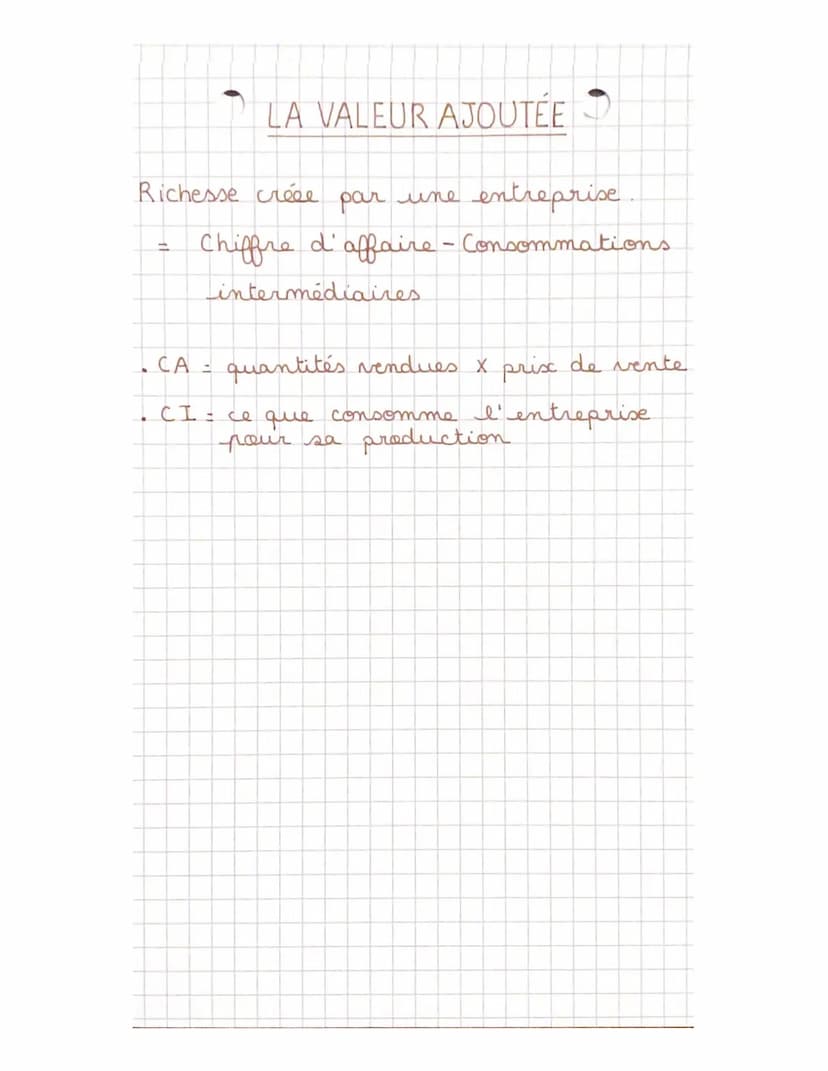 LA VALEUR AJOUTÉE
Richesse créée par une entreprise.
= Chiffre d'affaire - Consommations
intermédiaires
. CA = quantités vendues x prix de vente
. CI = ce que consomme l'entreprise
pour sa production